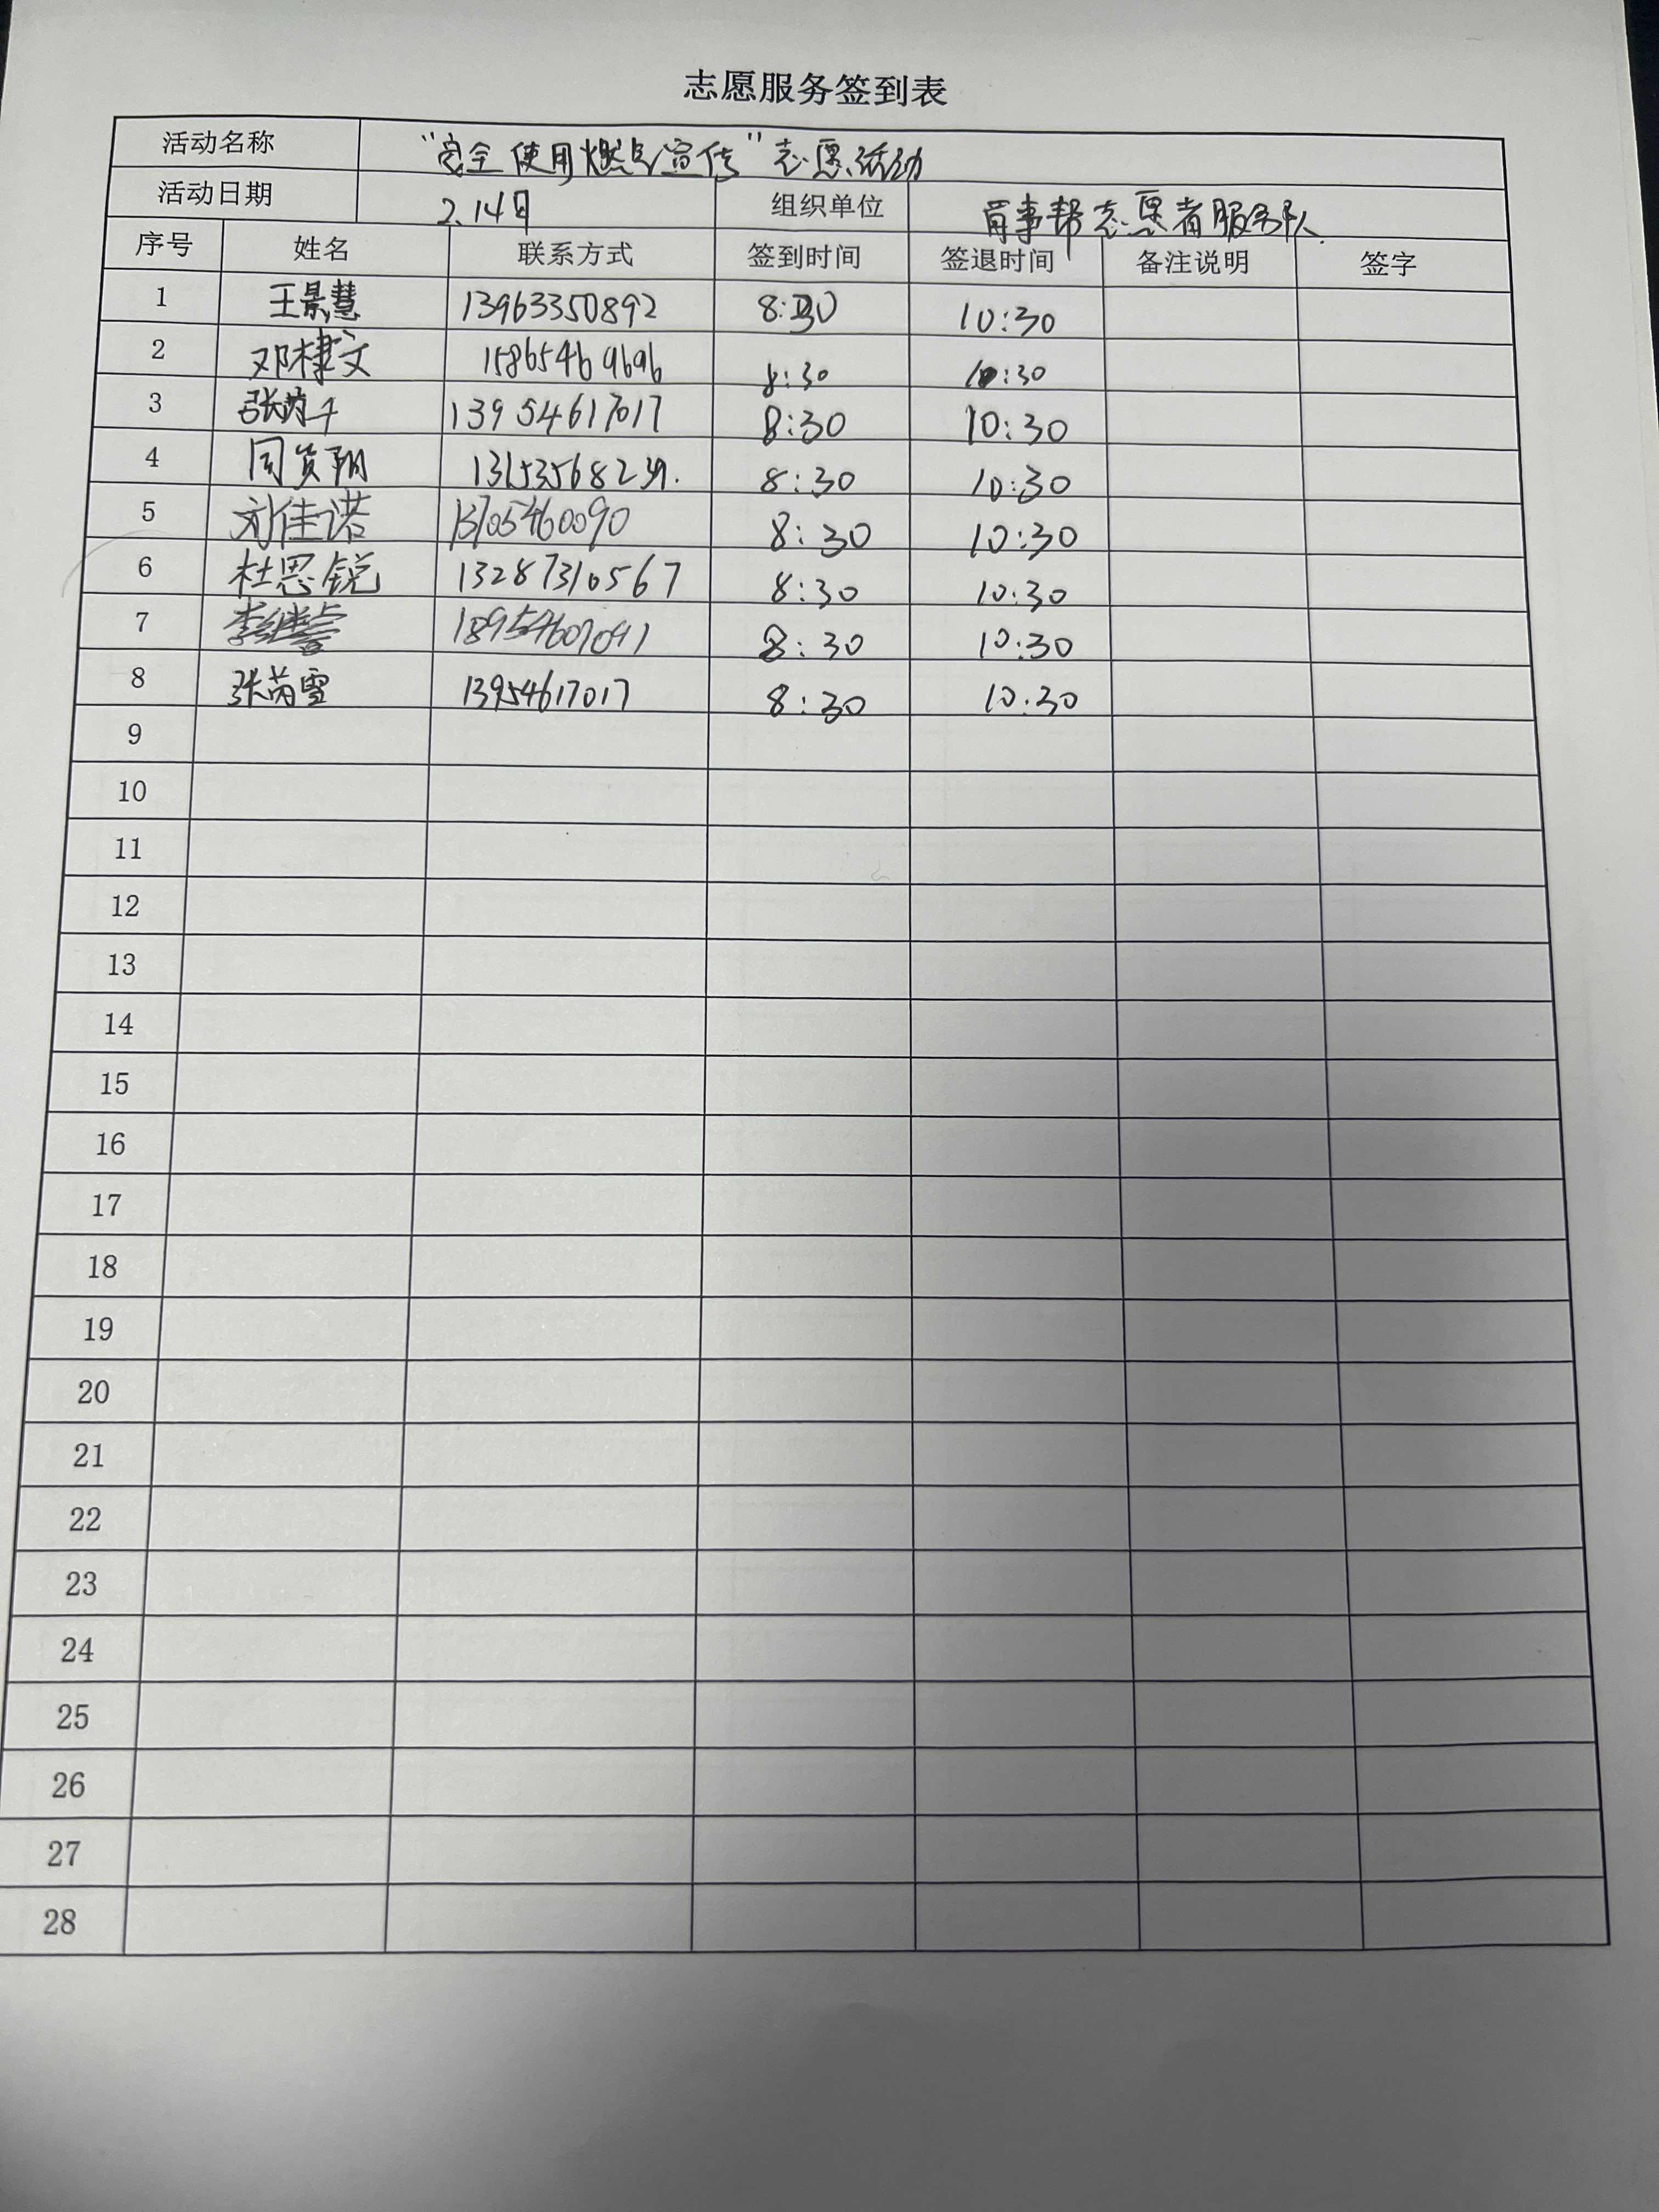 志愿服务签到表
活动名称 "安全使用燃气宣传"志愿活动
活动日期 2.14日 组织单位 百事帮志愿者服务队
序号 姓名 联系方式 签到时间 签退时间 备注说明 签字
1 王景慧 13963350892 8:30 10:30
2 邓棣文 15865469696 8:30 10:30
3 张 13954617017 8:30 10:30
4 1315356823 8:30 10:30
5 刘佳诺 13705460090 8:30 10:30
6 杜思锐 13287310567 8:30 10:30
7 李继 8:30 10:30
8 张芮雪 13954617017 8:30 10:30
9
10
11
12
13
14
15
16
17
18
19
20
21
22
23
24
25
26
27
28